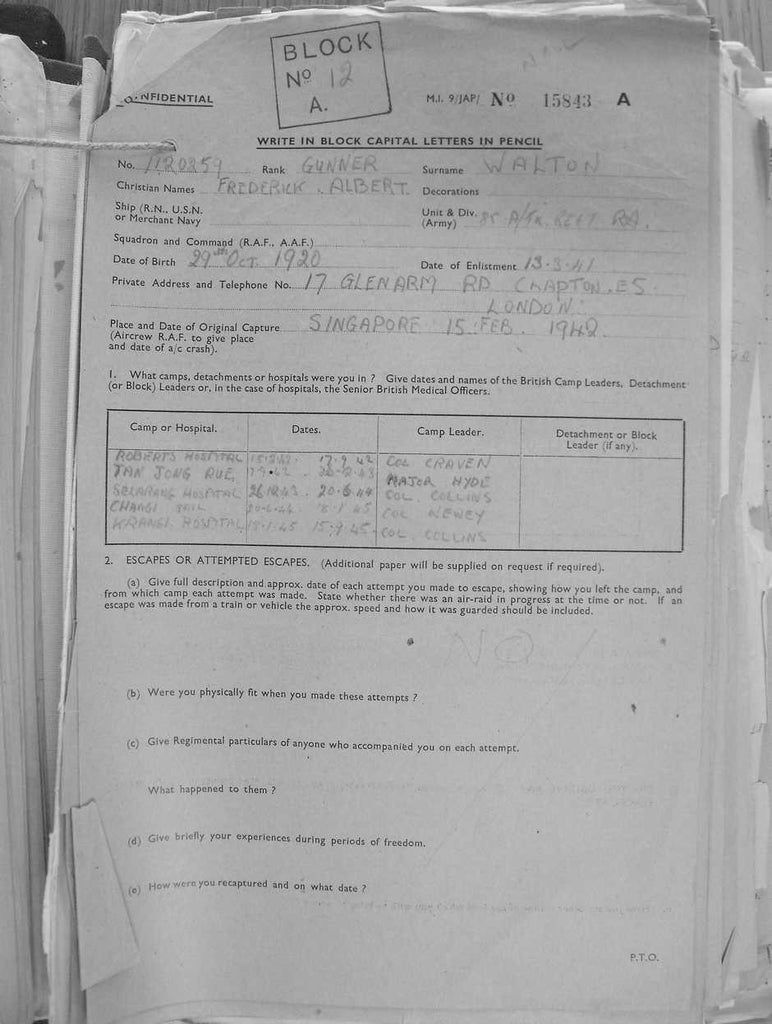 BLOCK
Nº 12
A.
CONFIDENTIAL
M.I. 9/JAP/ Nº 15843 A
WRITE IN BLOCK CAPITAL LETTERS IN PENCIL
No. 1120259 Rank GUNNER Surname WALTON
Christian Names FREDERICK . ALBERT. Decorations
Ship (R.N., U.S.N. or Merchant Navy
Unit & Div. (Army) 85 A/TK REGT RA.
Squadron and Command (R.A.F., A.A.F.)
Date of Birth 29TH OCT. 1920 Date of Enlistment 13.3.41
Private Address and Telephone No. 17 GLENARM RD CLAPTON. E5
LONDON
Place and Date of Original Capture SINGAPORE 15 FEB. 1942.
(Aircrew R.A.F. to give place
and date of a/c crash).
1. What camps, detachments or hospitals were you in ? Give dates and names of the British Camp Leaders, Detachment
(or Block) Leaders or, in the case of hospitals, the Senior British Medical Officers.
Camp or Hospital. Dates. Camp Leader. Detachment or Block
Leader (if any).
ROBERTS HOSPITAL 15.2.42. 17.9.42 COL CRAVEN
TAN JONG RUE, 17.9.42 . MAJOR HYDE
SELARANG HOSPITAL 26.12.43 . 20.6.44 COL. COLLINS
CHANGI JAIL 20.6.44 18.1.45 COL NEWEY
KRANGI HOSPITAL 18.1.45 15.9.45 COL. COLLINS
2. ESCAPES OR ATTEMPTED ESCAPES. (Additional paper will be supplied on request if required).
(a) Give full description and approx. date of each attempt you made to escape, showing how you left the camp, and
from which camp each attempt was made. State whether there was an air-raid in progress at the time or not. If an
escape was made from a train or vehicle the approx. speed and how it was guarded should be included.
NO
(b) Were you physically fit when you made these attempts ?
(c) Give Regimental particulars of anyone who accompanied you on each attempt.
What happened to them ?
(d) Give briefly your experiences during periods of freedom.
(e) How were you recaptured and on what date ?
P.T.O.